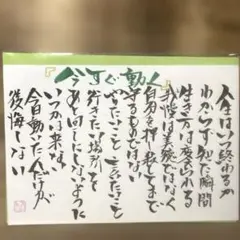 『今すぐ動く』
人生はいつ終わるか
わからず知った瞬間
生き方は変えられる
我慢は美徳ではなく
自分を押し殺してまで
するものではない
やりたいこと 言いたいこと
行きたい場所を
あと回しにしないように
いつかは来ない
今日動いた人だけが
後悔しない